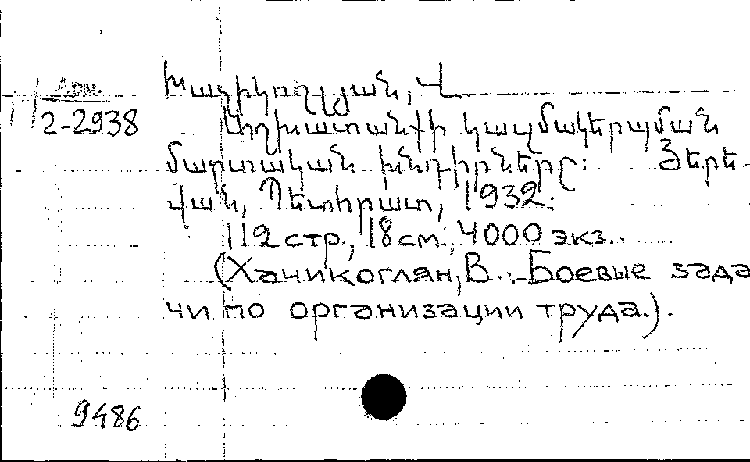 Խաչիկողլյան, Վ.
2-2938 Աշխատանքի կազմակերպման
մարտական խնդիրները: Յերե-
վան, Պետհրատ, 1932.
112 стр., 18 см., 4000 экз..
(Ханикоглян, В.. Боевые зада
чи по организации труда.).
9486